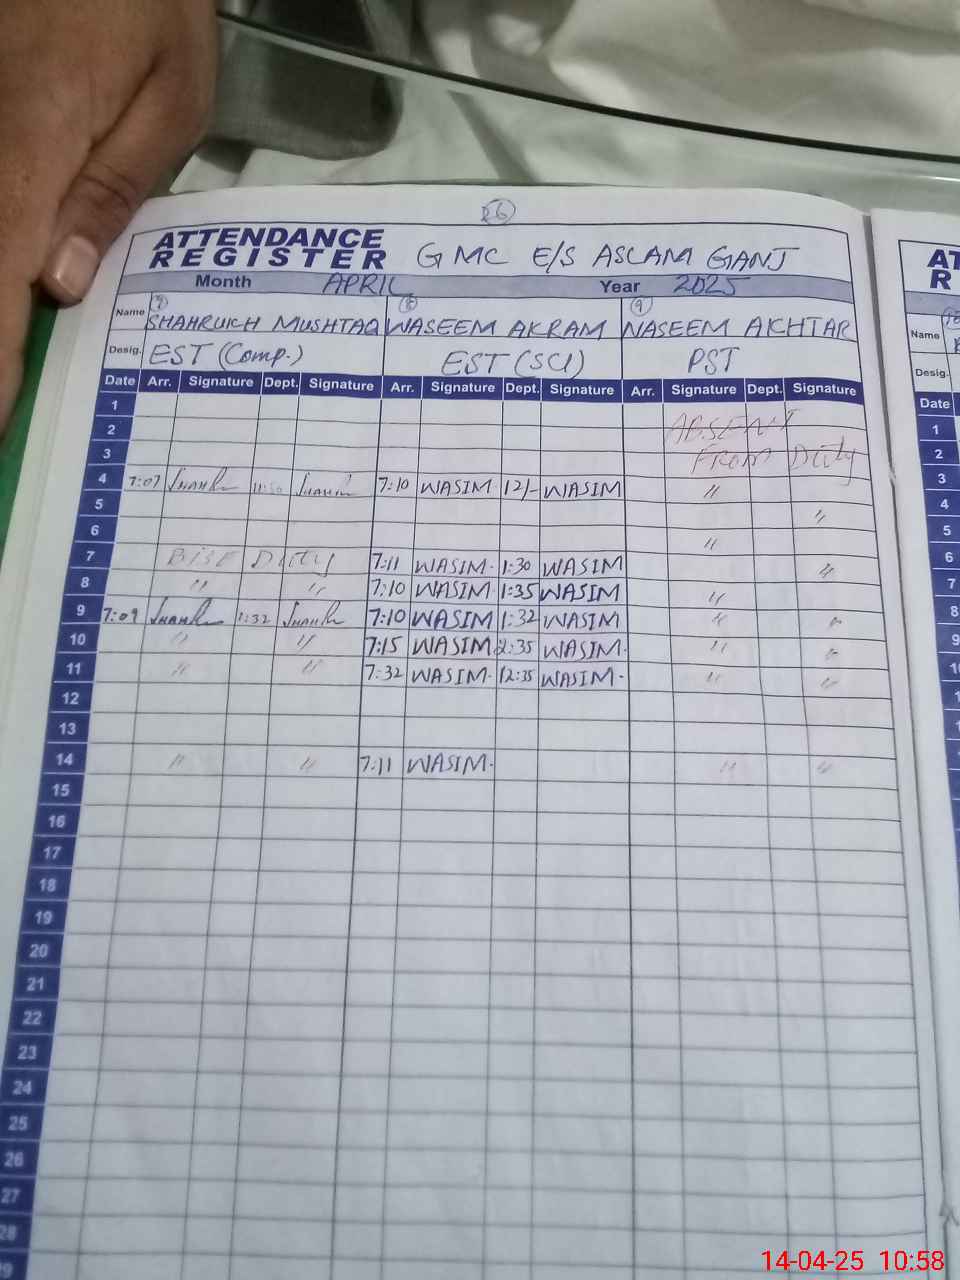 26
ATTENDANCE REGISTER GMC E/S ASLAM GANJ
Month APRIL Year 2025
Name SHAHRUKH MUSHTAQ WASEEM AKRAM NASEEM AKHTAR
Desig. EST (Comp.) EST (SCI) PST
Date Arr. Signature Dept. Signature Arr. Signature Dept. Signature Arr. Signature Dept. Signature
1
2 ABSENT
3 FROM Duty
4 7:07 7:10 WASIM. 12/- WASIM "
5 "
6 "
7 BISE Duty 7:11 WASIM. 1:30 WASIM "
8 " " 7:10 WASIM. 1:35 WASIM "
9 7:09 1:32 7:10 WASIM 1:32 WASIM " "
10 " " 7:15 WASIM 2:35 WASIM. " "
11 " " 7:32 WASIM. 12:35 WASIM. " "
12
13
14 " " 7:11 WASIM. " "
15
16
17
18
19
20
21
22
23
24
25
26
27
28
29
AT
R
Name
Desig.
Date
1
2
3
4
5
6
7
8
9
10
11
14-04-25 10:58